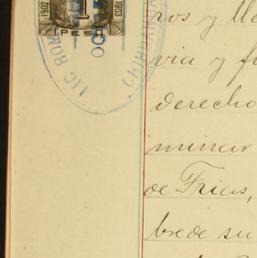 1902 1 1903
PESO
LIC. ROM
CHIHUAHUA
ros y
via y
derecho
minar
de Frias,
bre de su